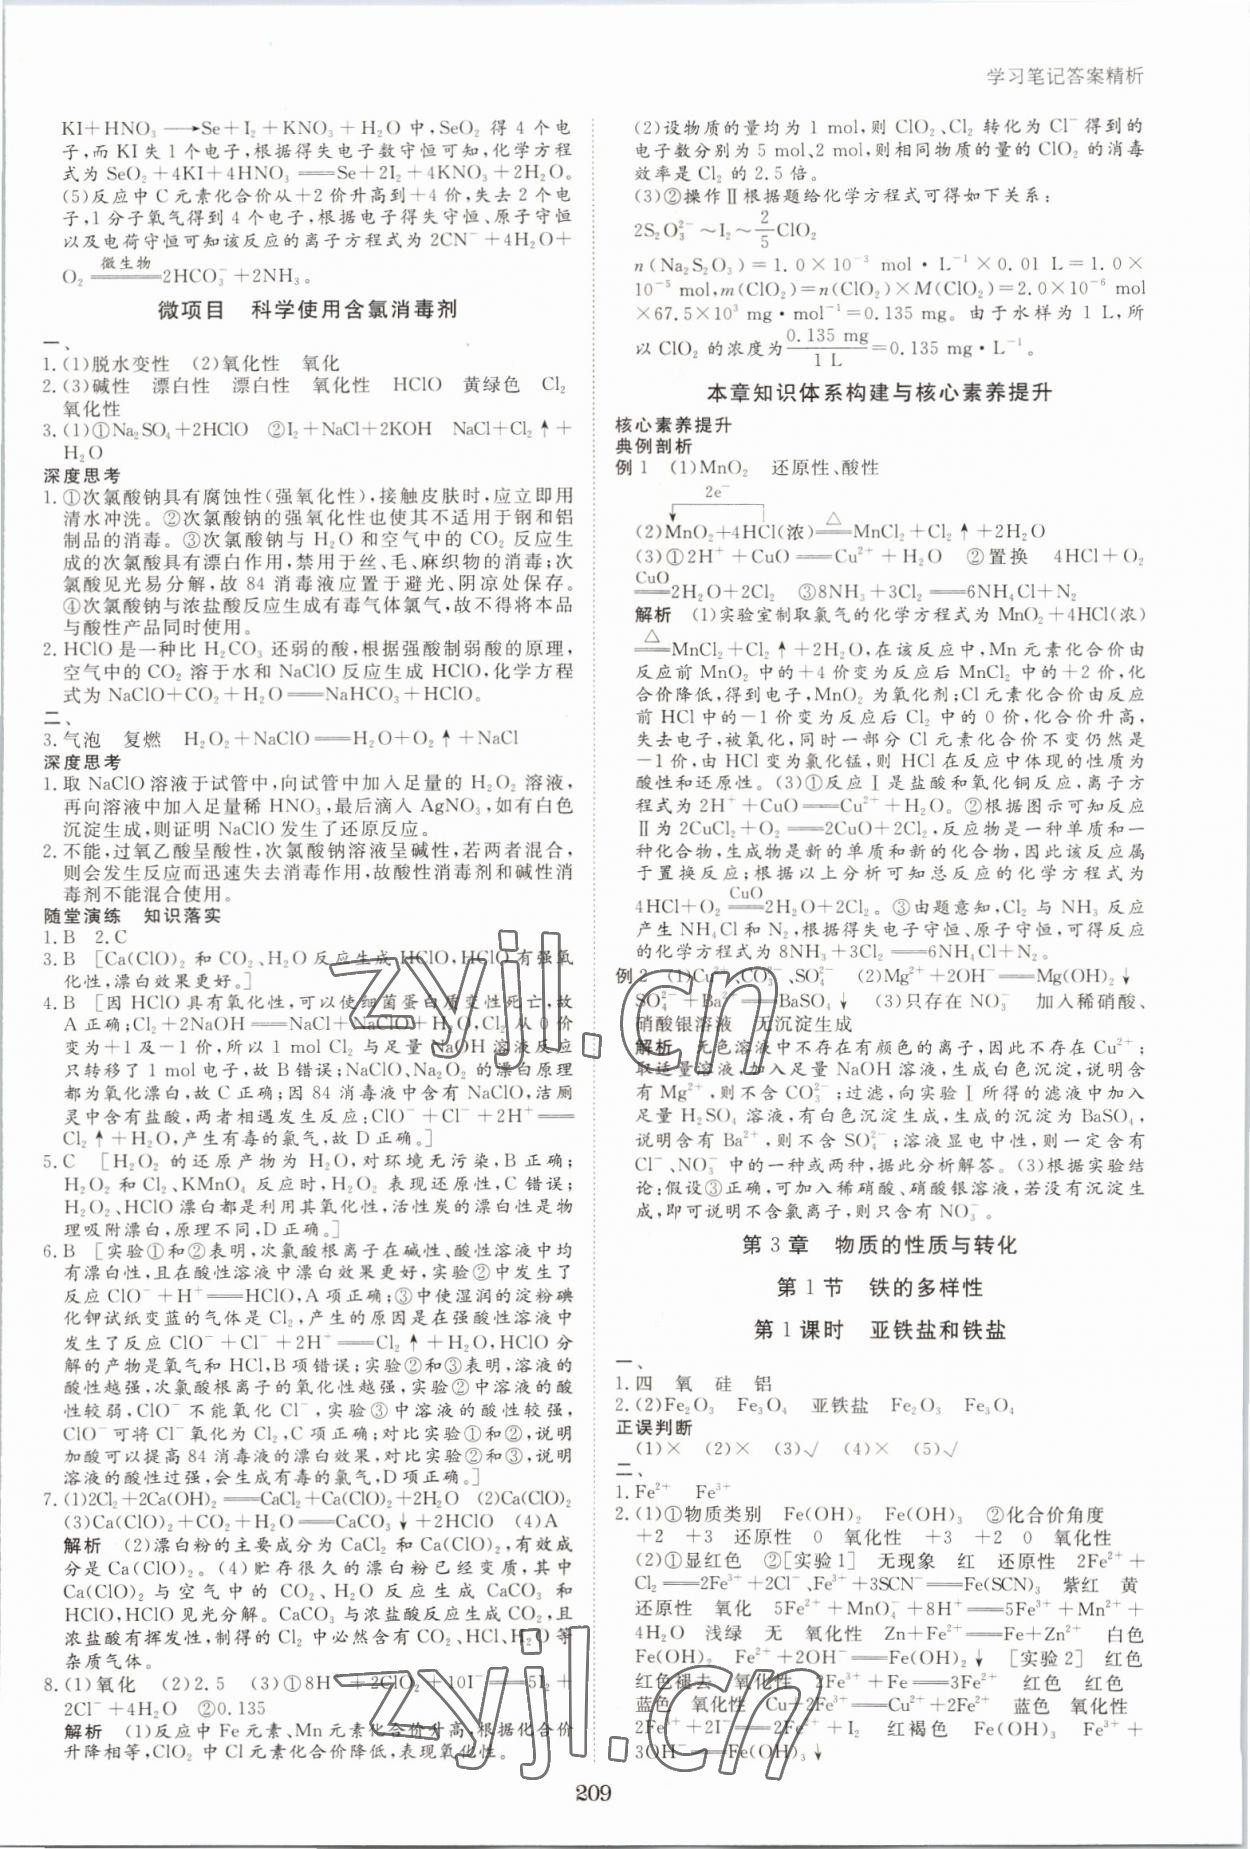 学习笔记答案精析
KI+HNO₃ ⟶Se+I₂+KNO₃+H₂O 中,SeO₂ 得 4 个电
子,而 KI 失 1 个电子,根据得失电子数守恒可知,化学方程
式为 SeO₂+4KI+4HNO₃══Se+2I₂+4KNO₃+2H₂O。
(5)反应中 C 元素化合价从+2 价升高到+4 价,失去 2 个电
子,1 分子氧气得到 4 个电子,根据电子得失守恒、原子守恒
以及电荷守恒可知该反应的离子方程式为 2CN⁻+4H₂O+
O₂ ══微生物══2HCO₃⁻+2NH₃。
微项目 科学使用含氯消毒剂
一、
1.(1)脱水变性 (2)氧化性 氧化
2.(3)碱性 漂白性 漂白性 氧化性 HClO 黄绿色 Cl₂
氧化性
3.(1)①Na₂SO₄+2HClO ②I₂+NaCl+2KOH NaCl+Cl₂↑+
H₂O
深度思考
1.①次氯酸钠具有腐蚀性(强氧化性),接触皮肤时,应立即用
清水冲洗。②次氯酸钠的强氧化性也使其不适用于钢和铝
制品的消毒。③次氯酸钠与 H₂O 和空气中的 CO₂ 反应生
成的次氯酸具有漂白作用,禁用于丝、毛、麻织物的消毒;次
氯酸见光易分解,故 84 消毒液应置于避光、阴凉处保存。
④次氯酸钠与浓盐酸反应生成有毒气体氯气,故不得将本品
与酸性产品同时使用。
2.HClO 是一种比 H₂CO₃ 还弱的酸,根据强酸制弱酸的原理,
空气中的 CO₂ 溶于水和 NaClO 反应生成 HClO,化学方程
式为 NaClO+CO₂+H₂O══NaHCO₃+HClO。
二、
3.气泡 复燃 H₂O₂+NaClO══H₂O+O₂↑+NaCl
深度思考
1.取 NaClO 溶液于试管中,向试管中加入足量的 H₂O₂ 溶液,
再向溶液中加入足量稀 HNO₃,最后滴入 AgNO₃,如有白色
沉淀生成,则证明 NaClO 发生了还原反应。
2.不能,过氧乙酸呈酸性,次氯酸钠溶液呈碱性,若两者混合,
则会发生反应而迅速失去消毒作用,故酸性消毒剂和碱性消
毒剂不能混合使用。
随堂演练 知识落实
1.B 2.C
3.B [Ca(ClO)₂ 和 CO₂、H₂O 反应生成 HClO,HClO 有强氧
化性,漂白效果更好。]
4.B [因 HClO 具有氧化性,可以使细菌蛋白质变性死亡,故
A 正确;Cl₂+2NaOH══NaCl+NaClO+H₂O,Cl₂ 从 0 价
变为+1 及-1 价,所以 1 mol Cl₂ 与足量 NaOH 溶液反应
只转移了 1 mol电子,故 B 错误;NaClO、Na₂O₂ 的漂白原理
都为氧化漂白,故 C 正确;因 84 消毒液中含有 NaClO,洁厕
灵中含有盐酸,两者相遇发生反应:ClO⁻+Cl⁻+2H⁺══
Cl₂↑+H₂O,产生有毒的氯气,故 D 正确。]
5.C [H₂O₂ 的还原产物为 H₂O,对环境无污染,B 正确;
H₂O₂ 和 Cl₂、KMnO₄ 反应时,H₂O₂ 表现还原性,C 错误;
H₂O₂、HClO 漂白都是利用其氧化性,活性炭的漂白性是物
理吸附漂白,原理不同,D正确。]
6.B [实验①和②表明,次氯酸根离子在碱性、酸性溶液中均
有漂白性,且在酸性溶液中漂白效果更好,实验②中发生了
反应 ClO⁻+H⁺══HClO,A 项正确;③中使湿润的淀粉碘
化钾试纸变蓝的气体是 Cl₂,产生的原因是在强酸性溶液中
发生了反应 ClO⁻+Cl⁻+2H⁺══Cl₂↑+H₂O,HClO 分
解的产物是氧气和 HCl,B 项错误;实验②和③表明,溶液的
酸性越强,次氯酸根离子的氧化性越强,实验②中溶液的酸
性较弱,ClO⁻ 不能氧化 Cl⁻,实验③中溶液的酸性较强,
ClO⁻ 可将 Cl⁻ 氧化为 Cl₂,C 项正确;对比实验①和②,说明
加酸可以提高 84 消毒液的漂白效果,对比实验②和③,说明
溶液的酸性过强,会生成有毒的氯气,D 项正确。]
7.(1)2Cl₂+2Ca(OH)₂══CaCl₂+Ca(ClO)₂+2H₂O (2)Ca(ClO)₂
(3)Ca(ClO)₂+CO₂+H₂O══CaCO₃↓+2HClO (4)A
解析 (2)漂白粉的主要成分为 CaCl₂ 和 Ca(ClO)₂,有效成
分是 Ca(ClO)₂。(4)贮存很久的漂白粉已经变质,其中
Ca(ClO)₂ 与空气中的 CO₂、H₂O 反应生成 CaCO₃ 和
HClO,HClO 见光分解。CaCO₃ 与浓盐酸反应生成 CO₂,且
浓盐酸有挥发性,制得的 Cl₂ 中必然含有 CO₂、HCl、H₂O 等
杂质气体。
8.(1)氧化 (2)2.5 (3)①8H⁺+2ClO₂+10I⁻══5I₂+
2Cl⁻+4H₂O ②0.135
解析 (1)反应中 Fe 元素、Mn 元素化合价升高,根据化合价
升降相等,ClO₂ 中 Cl 元素化合价降低,表现氧化性。
(2)设物质的量均为 1 mol,则 ClO₂、Cl₂ 转化为 Cl⁻ 得到的
电子数分别为 5 mol、2 mol,则相同物质的量的 ClO₂ 的消毒
效率是 Cl₂ 的 2.5 倍。
(3)②操作Ⅱ根据题给化学方程式可得如下关系:
2S₂O₃²⁻～I₂～2/5ClO₂
n(Na₂S₂O₃)=1.0×10⁻³ mol·L⁻¹×0.01 L=1.0×
10⁻⁵ mol,m(ClO₂)=n(ClO₂)×M(ClO₂)=2.0×10⁻⁶ mol
×67.5×10³ mg·mol⁻¹=0.135 mg。由于水样为 1 L,所
以 ClO₂ 的浓度为0.135 mg/1 L=0.135 mg·L⁻¹。
本章知识体系构建与核心素养提升
核心素养提升
典例剖析
例 1 (1)MnO₂ 还原性、酸性
2e⁻
(2)MnO₂+4HCl(浓)══△══MnCl₂+Cl₂↑+2H₂O
(3)①2H⁺+CuO══Cu²⁺+H₂O ②置换 4HCl+O₂
══CuO══2H₂O+2Cl₂ ③8NH₃+3Cl₂══6NH₄Cl+N₂
解析 (1)实验室制取氯气的化学方程式为 MnO₂+4HCl(浓)
══△══MnCl₂+Cl₂↑+2H₂O,在该反应中,Mn 元素化合价由
反应前 MnO₂ 中的+4 价变为反应后 MnCl₂ 中的+2 价,化
合价降低,得到电子,MnO₂ 为氧化剂;Cl元素化合价由反应
前 HCl中的-1 价变为反应后 Cl₂ 中的 0 价,化合价升高,
失去电子,被氧化,同时一部分 Cl 元素化合价不变仍然是
-1价,由 HCl 变为氯化锰,则 HCl 在反应中体现的性质为
酸性和还原性。(3)①反应Ⅰ是盐酸和氧化铜反应,离子方
程式为 2H⁺+CuO══Cu²⁺+H₂O。②根据图示可知反应
Ⅱ为 2CuCl₂+O₂══2CuO+2Cl₂,反应物是一种单质和一
种化合物,生成物是新的单质和新的化合物,因此该反应属
于置换反应;根据以上分析可知总反应的化学方程式为
4HCl+O₂══CuO══2H₂O+2Cl₂。③由题意知,Cl₂ 与 NH₃ 反应
产生 NH₄Cl 和 N₂,根据得失电子守恒、原子守恒,可得反应
的化学方程式为 8NH₃+3Cl₂══6NH₄Cl+N₂。
例 2 (1)Cu²⁺、CO₃²⁻、SO₄²⁻ (2)Mg²⁺+2OH⁻══Mg(OH)₂↓
SO₄²⁻+Ba²⁺══BaSO₄↓ (3)只存在 NO₃⁻ 加入稀硝酸、
硝酸银溶液 无沉淀生成
解析 无色溶液中不存在有颜色的离子,因此不存在 Cu²⁺;
取适量溶液,加入足量 NaOH 溶液,生成白色沉淀,说明含
有 Mg²⁺,则不含 CO₃²⁻;过滤,向实验Ⅰ所得的滤液中加入
足量 H₂SO₄ 溶液,有白色沉淀生成,生成的沉淀为 BaSO₄,
说明含有 Ba²⁺,则不含 SO₄²⁻;溶液显电中性,则一定含有
Cl⁻、NO₃⁻ 中的一种或两种,据此分析解答。(3)根据实验结
论:假设③正确,可加入稀硝酸、硝酸银溶液,若没有沉淀生
成,即可说明不含氯离子,则只含有 NO₃⁻。
第 3 章 物质的性质与转化
第 1 节 铁的多样性
第 1 课时 亚铁盐和铁盐
一、
1.四 氧 硅 铝
2.(2)Fe₂O₃ Fe₃O₄ 亚铁盐 Fe₂O₃ Fe₃O₄
正误判断
(1)× (2)× (3)√ (4)× (5)√
二、
1.Fe²⁺ Fe³⁺
2.(1)①物质类别 Fe(OH)₂ Fe(OH)₃ ②化合价角度
+2 +3 还原性 0 氧化性 +3 +2 0 氧化性
(2)①显红色 ②[实验1] 无现象 红 还原性 2Fe²⁺+
Cl₂══2Fe³⁺+2Cl⁻、Fe³⁺+3SCN⁻══Fe(SCN)₃ 紫红 黄
还原性 氧化 5Fe²⁺+MnO₄⁻+8H⁺══5Fe³⁺+Mn²⁺+
4H₂O 浅绿 无 氧化性 Zn+Fe²⁺══Fe+Zn²⁺ 白色
Fe(OH)₂ Fe²⁺+2OH⁻══Fe(OH)₂↓ [实验2] 红色
红色褪去 氧化性 2Fe³⁺+Fe══3Fe²⁺ 红色 红色
蓝色 氧化性 Cu+2Fe³⁺══Cu²⁺+2Fe²⁺ 蓝色 氧化性
2Fe³⁺+2I⁻══2Fe²⁺+I₂ 红褐色 Fe(OH)₃ Fe³⁺+
3OH⁻══Fe(OH)₃↓
209
zyjl.cn
zyjl.cn